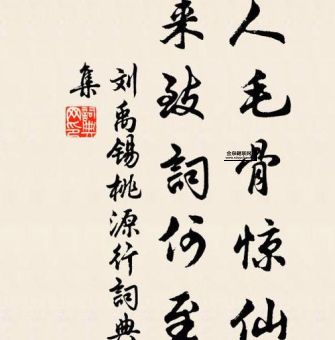 人毛骨惊仙
来致词何至
刘禹锡桃源行词典
集